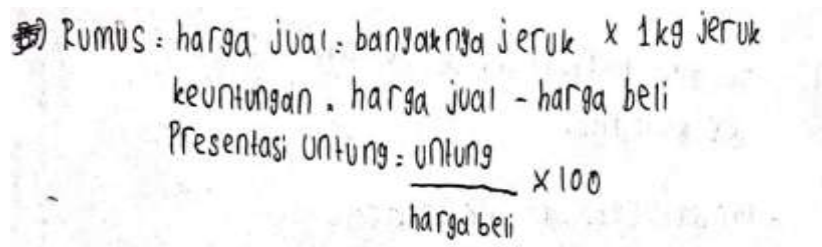 Rumus : harga jual : banyaknya jeruk x 1kg jeruk
keuntungan . harga jual - harga beli
Presentasi untung : untung
x 100
harga beli